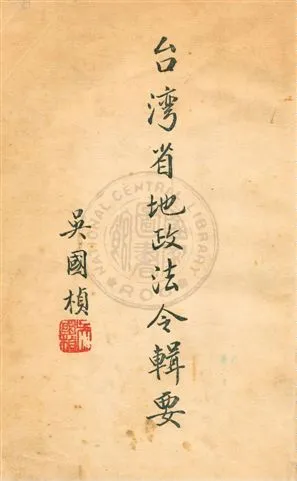 台湾省地政法令輯要
吳國楨
NATIONAL CENTRAL LIBRARY
R.O.C.